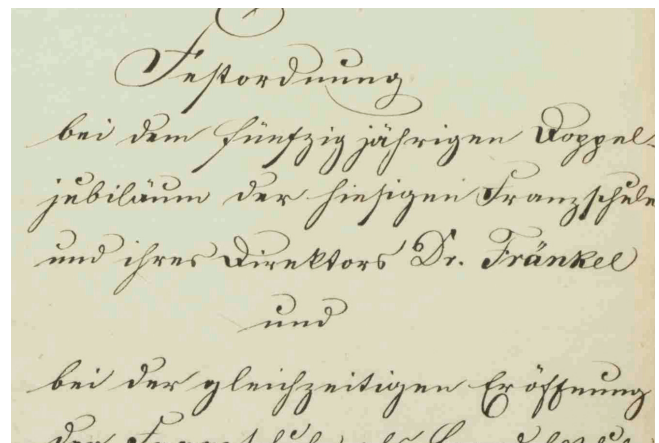 Festordnung
bei dem fünfzigjährigen Doppel-
jubiläum der hiesigen Franzschule
und ihres Direktors Dr. Fränkel
und
bei der gleichzeitigen Eröffnung
der Franzschule als